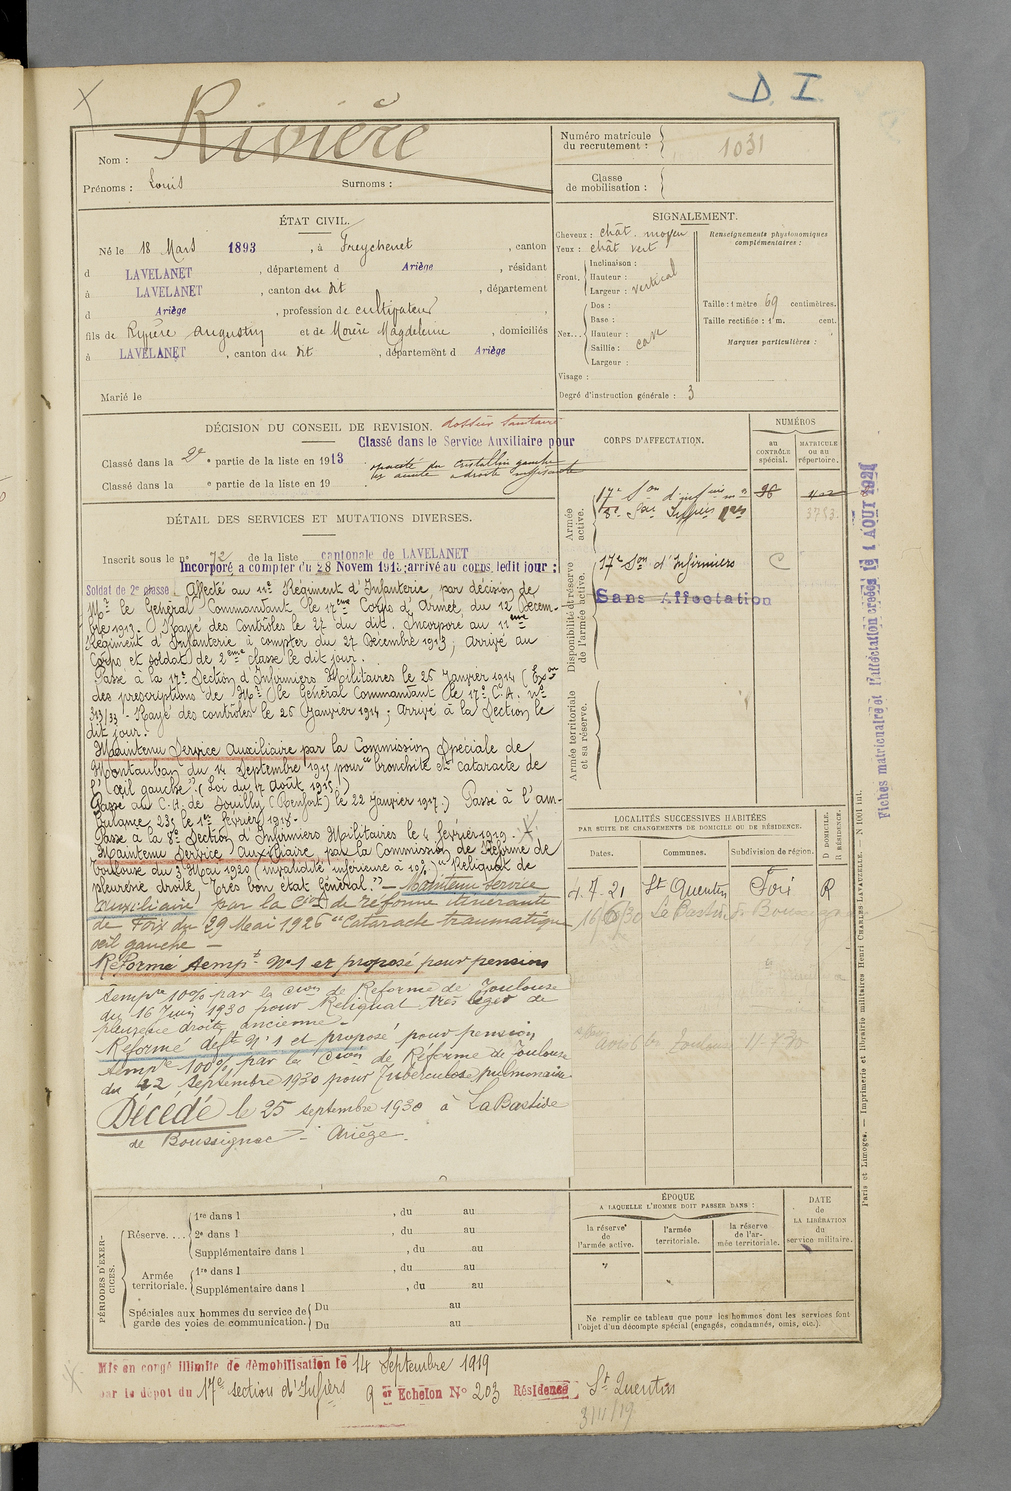 D. I.
Rivière
Nom :
Prénoms : Louis Surnoms :
Numéro matricule du recrutement : 1031
Classe de mobilisation :
ÉTAT CIVIL.
Né le 18 Mars 1893, à Freychenet, canton
d LAVELANET, département d Ariège, résidant
à LAVELANET, canton du dit, département
d Ariège, profession de cultivateur
fils de Rivière Augustin et de Morère Magdeleine, domiciliés
à LAVELANET, canton du dit, département d Ariège
Marié le
SIGNALEMENT.
Cheveux : chât. moyen
Yeux : chât vert
Front, Inclinaison :
Hauteur :
Largeur : vertical
Nez... Dos :
Base :
Hauteur :
Saillie : cave
Largeur :
Visage :
Renseignements physionomiques complémentaires :
Taille : 1 mètre 69 centimètres.
Taille rectifiée : 1 m. cent.
Marques particulières :
Degré d'instruction générale : 3
DÉCISION DU CONSEIL DE REVISION. dossier sanitaire
Classé dans le Service Auxiliaire pour
Classé dans la 2e partie de la liste en 1913
opacité du cristallin gauche
à droite
Classé dans la e partie de la liste en 19
DÉTAIL DES SERVICES ET MUTATIONS DIVERSES.
Inscrit sous le no 72 de la liste cantonale de LAVELANET
Incorporé a compter du 28 Novem 1913; arrivé au corps ledit jour ;
Soldat de 2e classe. Affecté au 11e Régiment d'Infanterie par décision de
Mr le Général Commandant le 17ème Corps d'Armée du 12 Décem-
bre 1913. Rayé des Contrôles le 27 du dit. Incorporé au 11ème
Régiment d'Infanterie à compter du 27 Décembre 1913 ; arrivé au
Corps et soldat de 2ème classe le dit jour.
Passé à la 17e Section d'Infirmiers Militaires le 26 Janvier 1914 (Exon
des prescriptions de Mr le Général Commandant le 17e C.A. no
313/33 - Rayé des contrôles le 26 Janvier 1914 ; Arrivé à la Section le
dit jour.
Maintenu Service Auxiliaire par la Commission Spéciale de
Montauban du 14 Septembre 1915 pour "bronchite et Cataracte de
l'œil gauche" (Loi du 17 Août 1915)
Passé au C.H. de Souilly (Renfort) le 22 Janvier 1917. Passé à l'am-
bulance 235 le 1er Février 1918.
Passé à la 8e Section d'Infirmiers Militaires le 4 février 1919.
Maintenu Service Auxiliaire par la Commission de Réforme de
Toulouse du 3 Mai 1920 (invalidité inférieure à 10%) "Reliquat de
pleurésie droite, très bon état Général." — Maintenu service
auxiliaire par la Cion de réforme itinérante
de Foix du 29 Mai 1926 "Cataracte traumatique
œil gauche —
Réformé tempre No 1 et proposé pour pension
tempre 10% par la Cion de Réforme de Toulouse
du 16 Juin 1930 pour Reliquat très léger de
pleurésie droite ancienne -
Réformé deft No 1 et proposé pour pension
tempre 100% par la Cion de Réforme de Toulouse
du 22 Septembre 1930 pour Tuberculose pulmonaire
Décédé le 25 septembre 1930 à LaBastide
de Boussignac - Ariège.
CORPS D'AFFECTATION.
NUMÉROS
au CONTRÔLE spécial.
MATRICULE ou au répertoire.
Armée active.
17e Son d'infires mres
8e
3753.
Disponibilité et réserve de l'armée active.
17e Son d'Infirmiers C
Sans Affectation
Armée territoriale et sa réserve.
LOCALITÉS SUCCESSIVES HABITÉES
PAR SUITE DE CHANGEMENTS DE DOMICILE OU DE RÉSIDENCE.
Dates. Communes. Subdivision de région. D DOMICILE. R RÉSIDENCE.
4.7.21 St Quentin Foix R
16 6 30 La Bastide de Boussignac
Toulouse 11-7-30
Fiches matricule et d'affectation créées le 1 AOUT 1921
Paris et Limoges. — Imprimerie et librairie militaires Henri CHARLES-LAVAUZELLE. — N 1001 int.
PÉRIODES D'EXERCICES.
Réserve.... 1re dans l , du au
2e dans l , du au
Supplémentaire dans l , du au
Armée territoriale. 1re dans l , du au
Supplémentaire dans l , du au
Spéciales aux hommes du service de garde des voies de communication. Du au
Du au
ÉPOQUE
A LAQUELLE L'HOMME DOIT PASSER DANS :
la réserve de l'armée active.
l'armée territoriale.
la réserve de l'armée territoriale.
DATE de LA LIBÉRATION du service militaire.
Ne remplir ce tableau que pour les hommes dont les services font
l'objet d'un décompte spécial (engagés, condamnés, omis, etc.).
Mis en congé illimité de démobilisation le 14 Septembre 1919
par le dépôt du 17e section d'Infiers 9 Echelon No 203 Résidence St Quentin
3/11/19